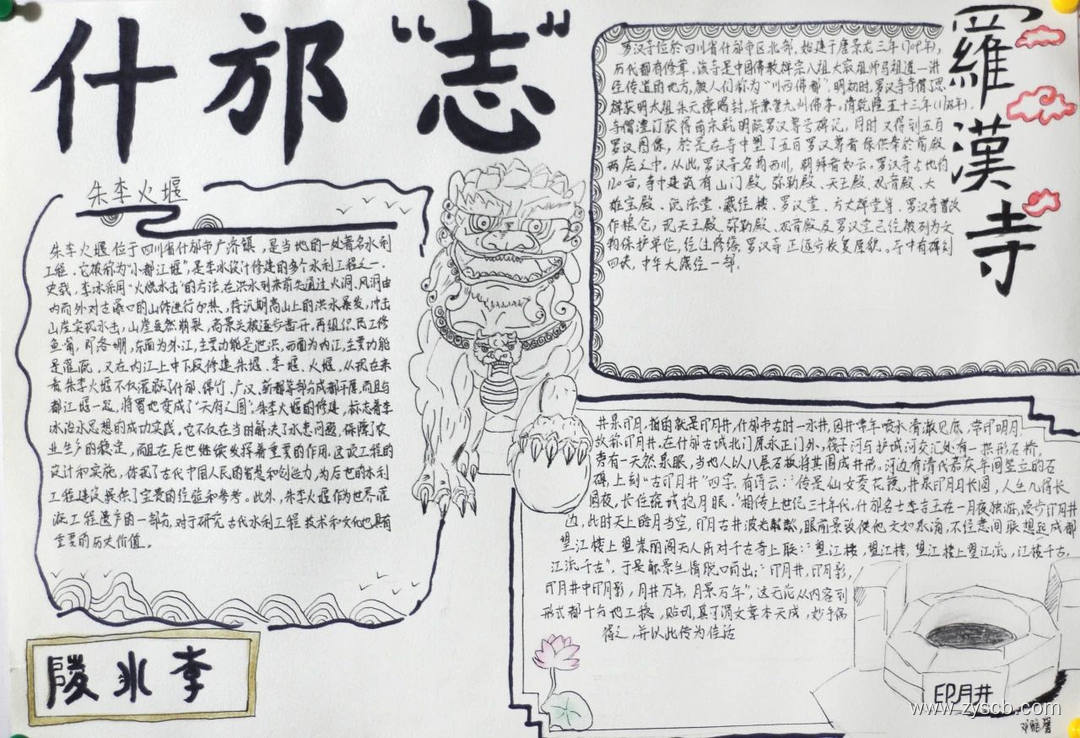 什邡"志"
朱李火堰
朱李火堰位于四川省什邡市广济镇，是当地的一处著名水利
工程。它被称为"小都江堰"，是李冰设计修建的多个水利工程之一。
史载，李冰采用"火烧水击"的方法，在洪水到来前先通过火洞、风洞由
内而外对古瀑口的山体进行加热，待汛期高山上的洪水暴发，冲击
山崖实现水击，山崖虽然崩裂，高景关被逐步凿开，再组织民工修
鱼
东面为外江，主要功能是泄洪，西面为内江，主要功能
是灌溉，又在内江上中下段修建朱堰、李堰、火堰，从现在来
看朱李火堰不仅灌溉了什邡、绵竹、广汉、新都等部分成都平原，而且与
都江堰一起，将蜀地变成了"天府之国"。朱李火堰的修建，标志着李
冰治水思想的成功实践，它不仅在当时解决了水患问题，保障了农
业生产的稳定，而且在后世继续发挥着重要的作用。这武工程的
设计和实施，体现了古代中国人民的智慧和创造力，为后世的水利
工程建设提供了宝贵的经验和参考。此外，朱李火堰作为世界灌
溉工程遗产的一部分，对于研究古代水利工程技术和文化也具有
重要的历史价值。
陵冰李
羅漢寺
罗汉寺位於四川省什邡市区北部，始建于唐景龙三年(709年)，
历代都有修葺，该寺是中国佛教禅宗八祖大寂祖师马祖道一讲
经传道的地方，被人们称为"川西佛都"。明初时，罗汉寺寺僧了思
禅获明太祖朱元璋赐封，并兼管九州佛事，清乾隆五十三年(1788年)，
寺僧澄汀获得南宋乾明院罗汉尊号碑记，同时又得到五百
罗汉图像，於是在寺中塑了五百罗汉尊者像供奉於前殿
两庑之中。从此，罗汉寺名甪西川，朝拜者如云。罗汉寺占地约
120亩，寺中建筑有山门殿、弥勒殿、天王殿、观音殿、大
雄宝殿、说法堂、藏经楼、罗汉堂、方丈禅堂等，罗汉寺曾改
作粮仓，现天王殿、弥勒殿、观音殿及罗汉堂已经被列为文
物保护单位，经过修缮，罗汉寺正逐步恢复原貌。寺中有碑刻
四块，中华大藏经一部。
井泉印月，指的就是印月井，什邡市古时一水井，因井常年吸水清澈见底，常印明月，
故称印月井，在什邡古城北门原永正门外，筏子河与护城河交汇处有一拱形石桥，
旁有一天然泉眼，当地人以八层石板将其围成井吊。河边有清代嘉庆年间竖立的石
碑，上刻"古印月井"四字，有诗云："传是仙女葵花魂，井泉印月月长圆，人生几得长
圆夜，长住琉璃抱月眠。"相传上世纪三十年代，什邡名士李吉玉在一月夜独游，漫步印月井
边，此时天上皓月当空，印月古井波光粼粼，眼前景致使他文如泉涌，不经意间联想起成都
望江楼上望崇丽阁无人所对千古奇上联："望江楼，望江楼，望江楼上望江流，江楼千古，
江流千古"，于是触景生情脱口而出："印月井，印月影，
印月井中印月影，月井万年，月景万年"，这无论从内容到
形式都十分地工稳，贴切，真可谓文章本天成，妙手偶
得之，并以此传为佳话
印月井
www.zyscb.com